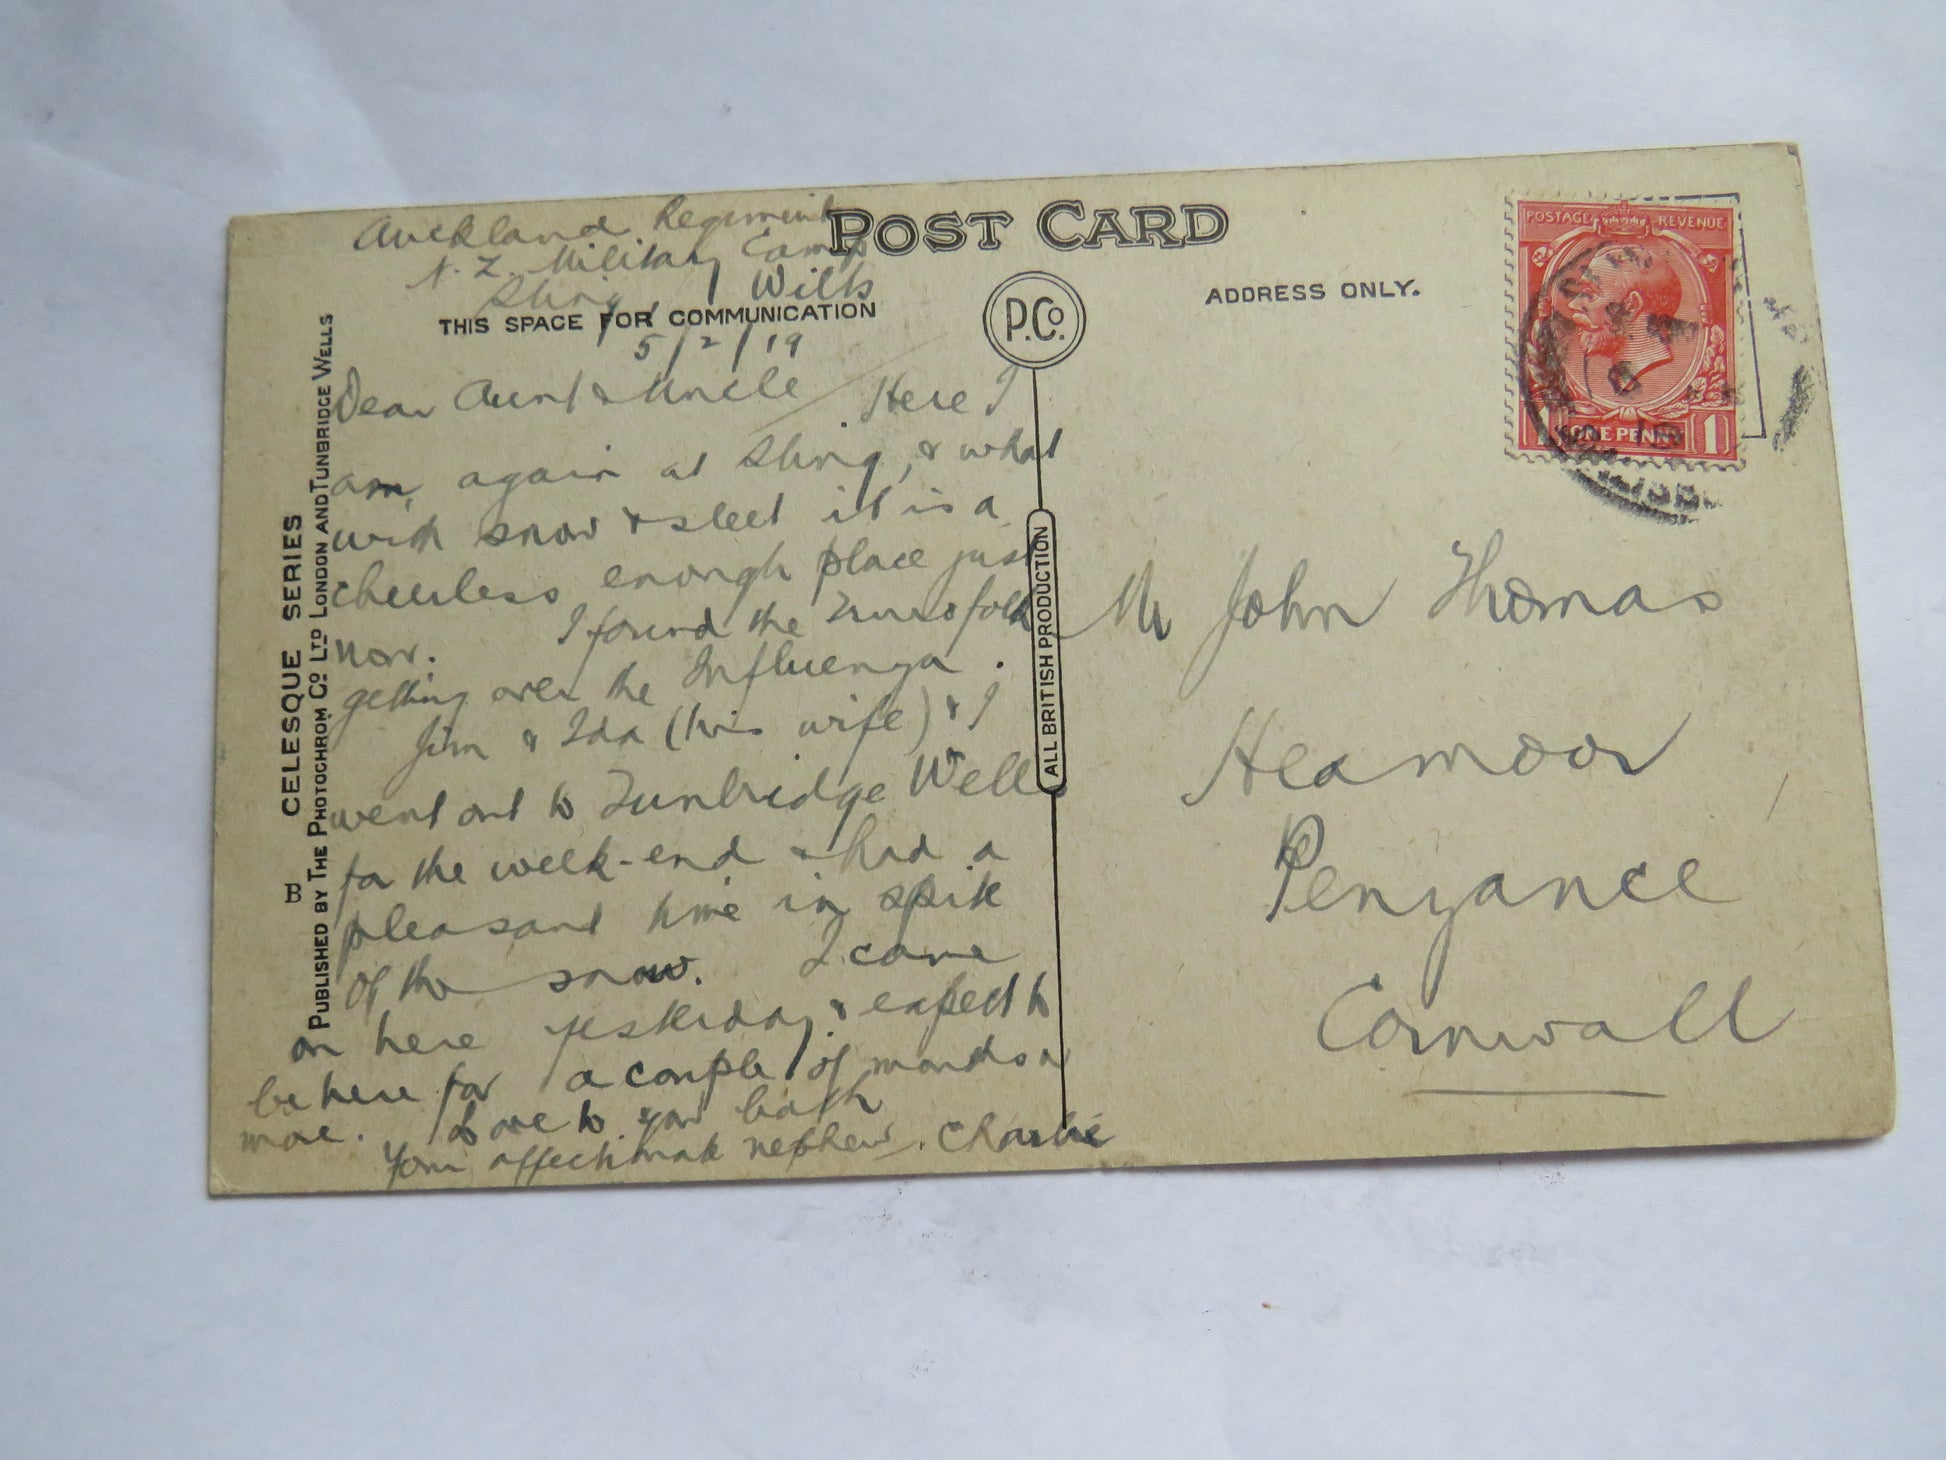 POST CARD
Auckland Regiment
N. Z. Military Camp
Sling Wilts
THIS SPACE FOR COMMUNICATION
5/2/19
Dear Aunt & Uncle Here I
am, again at Sling, & what
with snow & sleet it is a
cheerless enough place just
now. I found the folk
getting over the Influenza.
Jim & Ida (his wife) & I
went out to Tunbridge Wells
for the week-end & had a
pleasant time in spite
of the snow. I came
on here yesterday & expect to
be here for a couple of months or
more. Love to you both
Your affectionate nephew. Charlie
B CELESQUE SERIES
PUBLISHED BY THE PHOTOCHROM CO LTD LONDON AND TUNBRIDGE WELLS
P.Co.
ALL BRITISH PRODUCTION
ADDRESS ONLY.
POSTAGE REVENUE
1 ONE PENNY 1
Mr John Thomas
Heamoor
Penzance
Cornwall